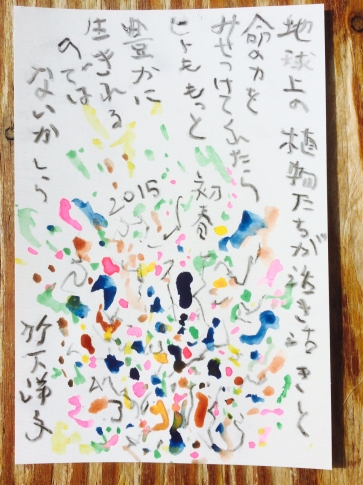 地球上の植物たちが活き活きと
命の力を
みせつけてくれたら
ヒトももっと
豊かに
生きれる
のでは
ないかしら
2015 初春
竹下洋子